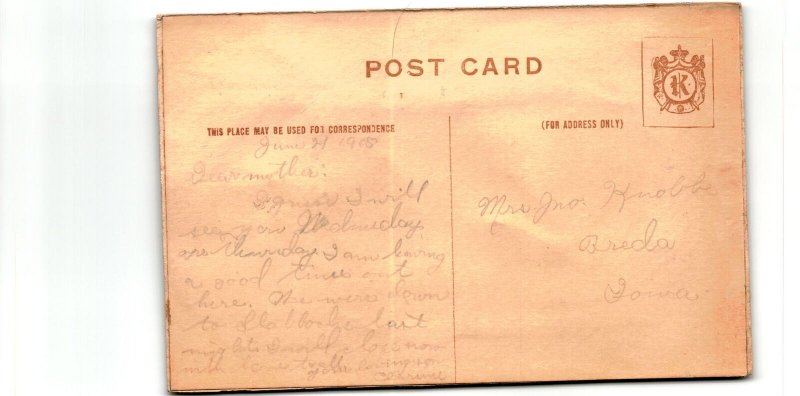 POST CARD
K
THIS PLACE MAY BE USED FOR CORRESPONDENCE
(FOR ADDRESS ONLY)
June 21 1915
Dear mother:
I guess I will
see you Wednesday
are thursday I am having
a good time out
here. We were down
to last
night I will close now
with love to all
your loving son
Mrs Jno. Knobbe
Breda
Iowa